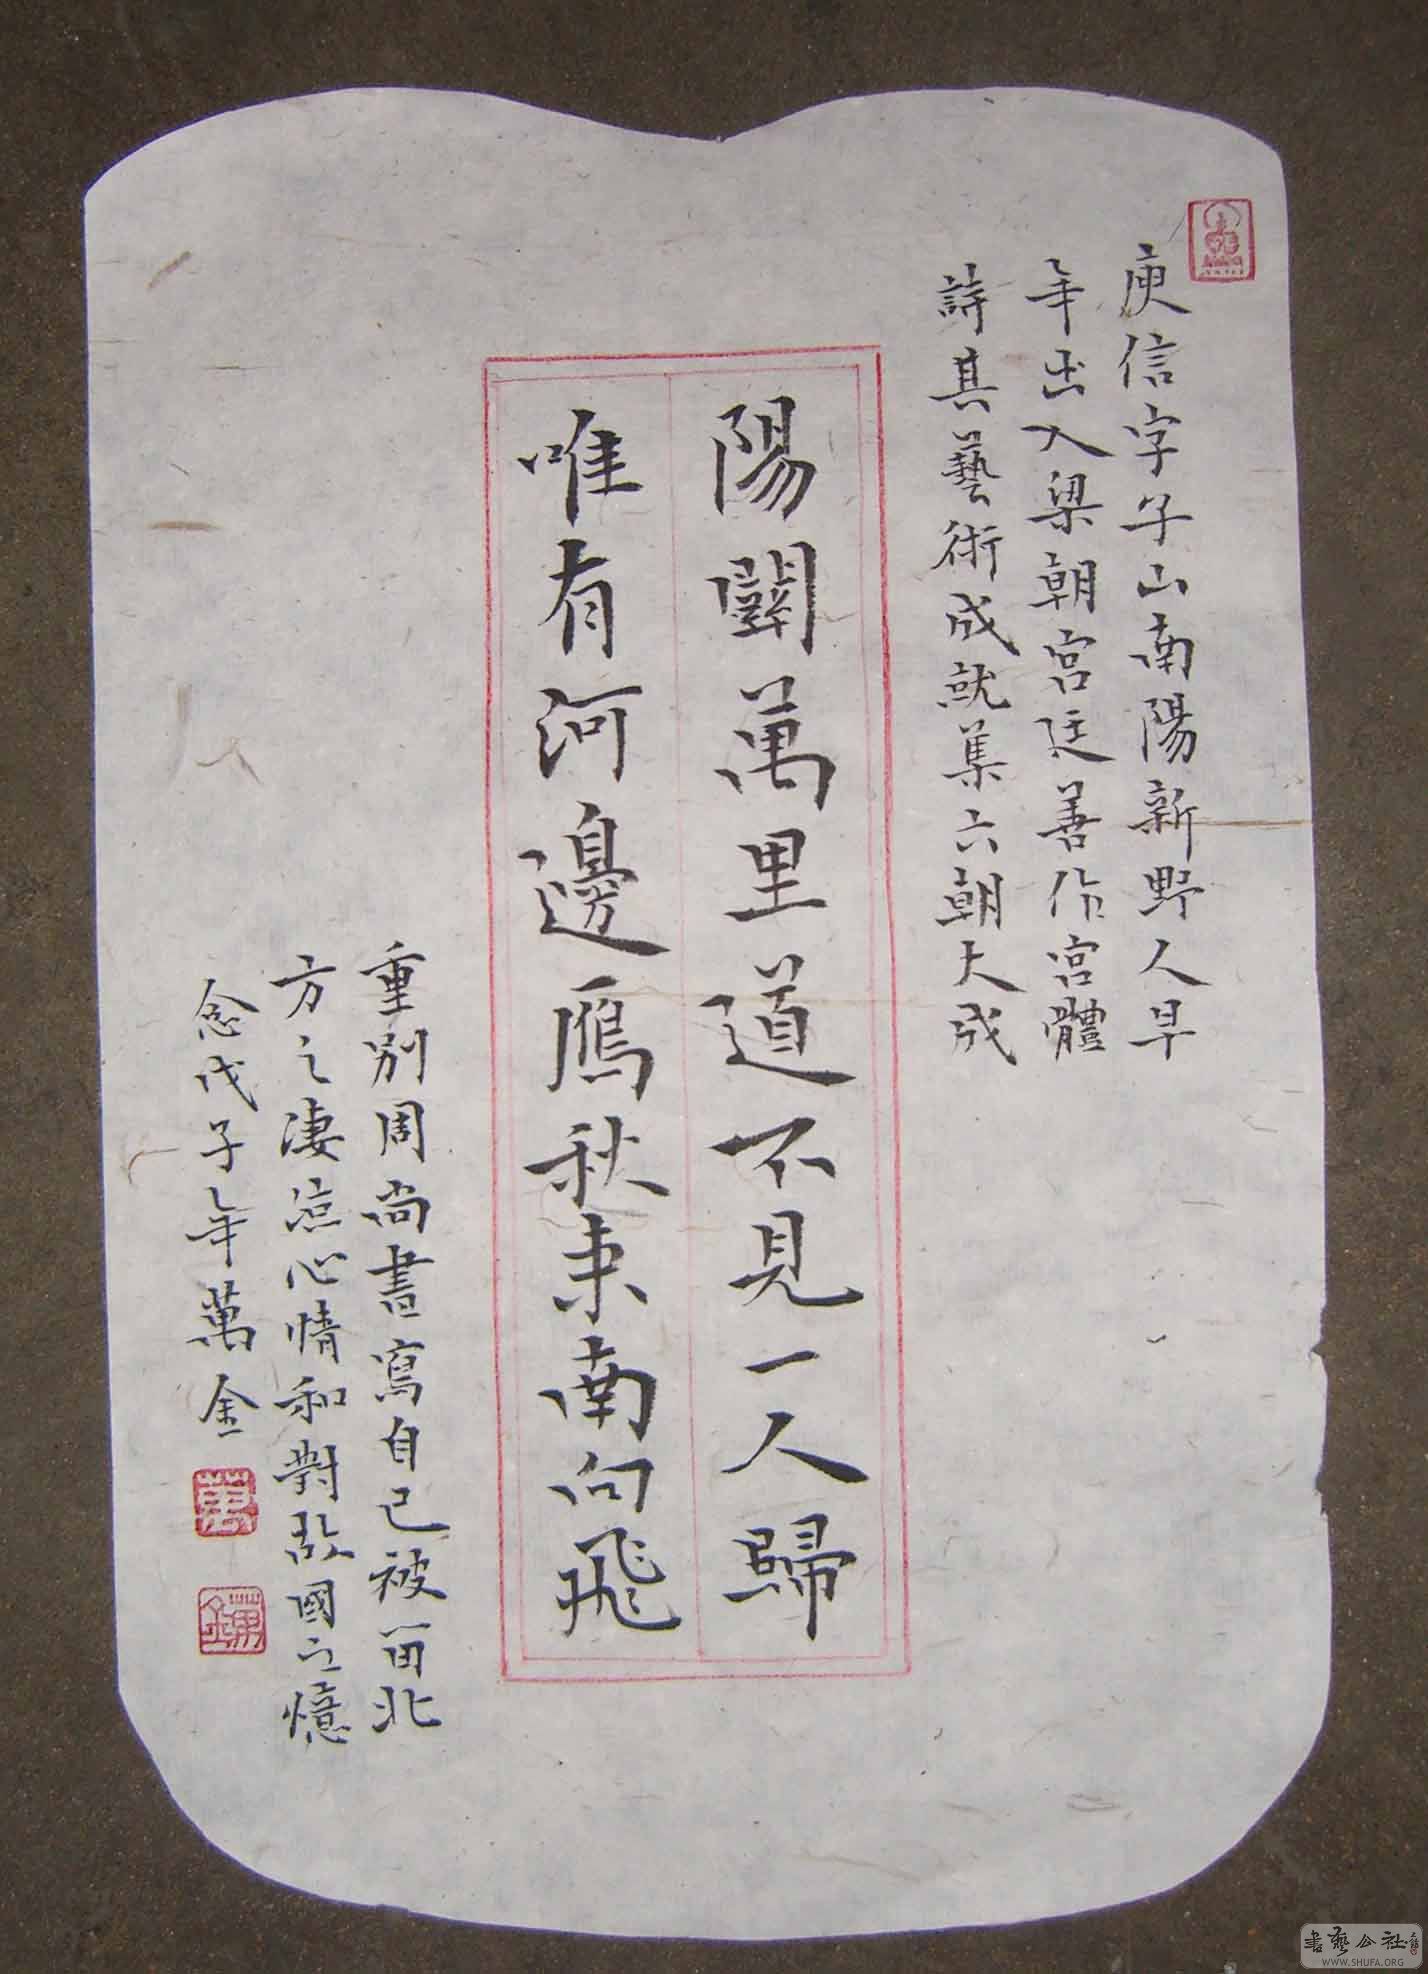 庾信字子山南陽新野人早
年出入梁朝宮廷善作宮體
詩其藝術成就集六朝大成
陽關萬里道不見一人歸
唯有河邊鴈秋來南向飛
重別周尚書寫自己被留北
方之淒涼心情和對故國之憶
念戊子年萬金
書藝公社
WWW.SHUFA.ORG